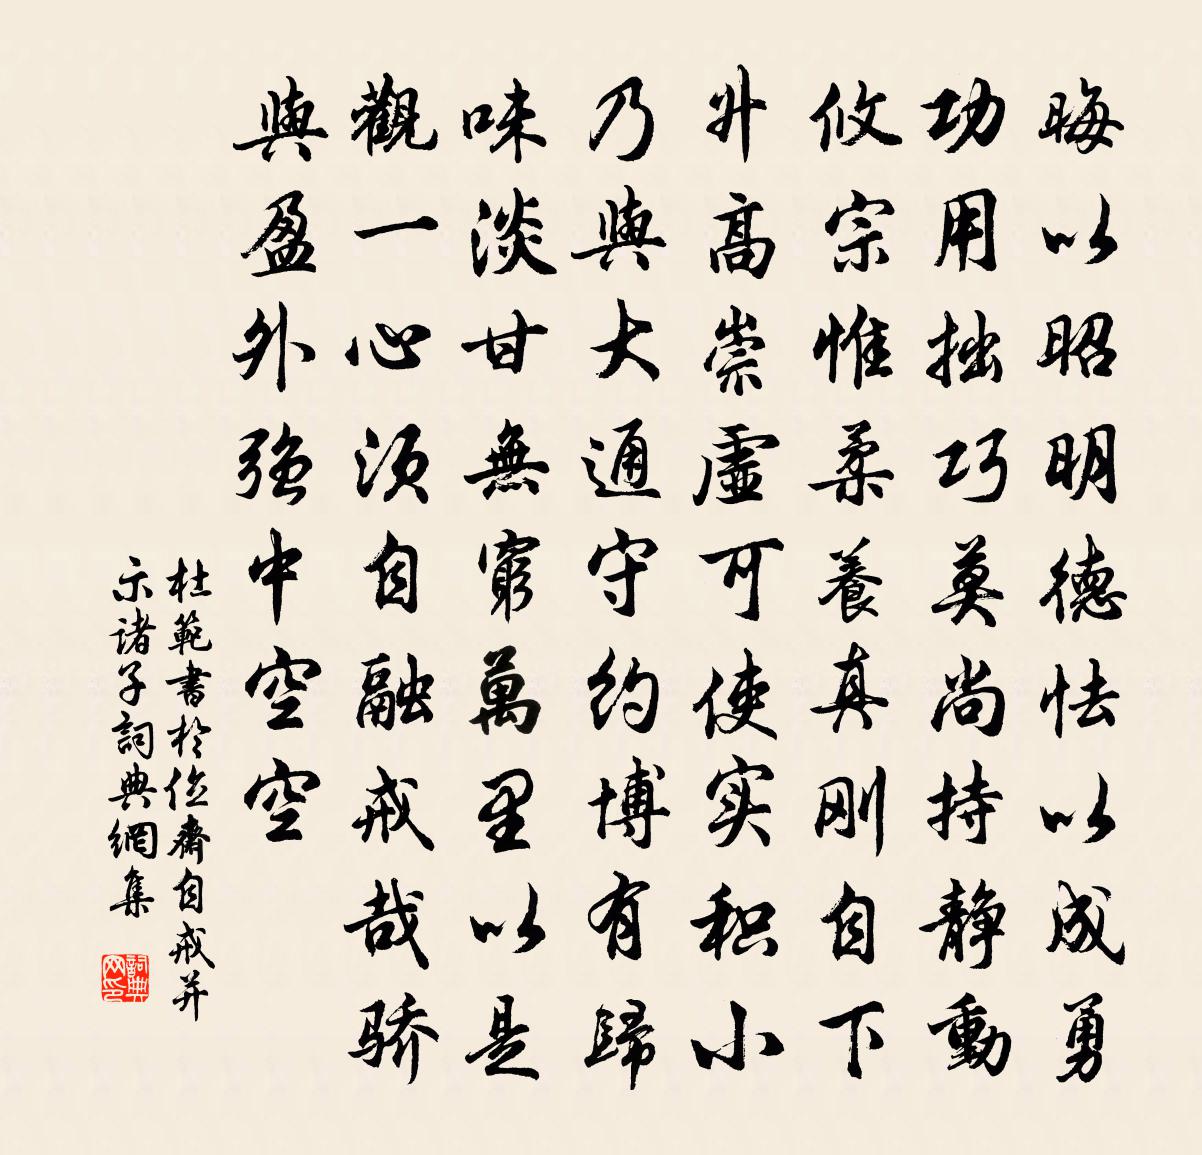 晦以昭明德怯以成勇
功用拙巧莫尚持静動
攸宗惟柔養真刚自下
升高崇虚可使实积小
乃與大通守约博有歸
味淡甘無窮萬里以是
觀一心须自融戒哉骄
與盈外强中空空
杜範書於俭齋自戒并
示诸子詞典網集
詞典
网印